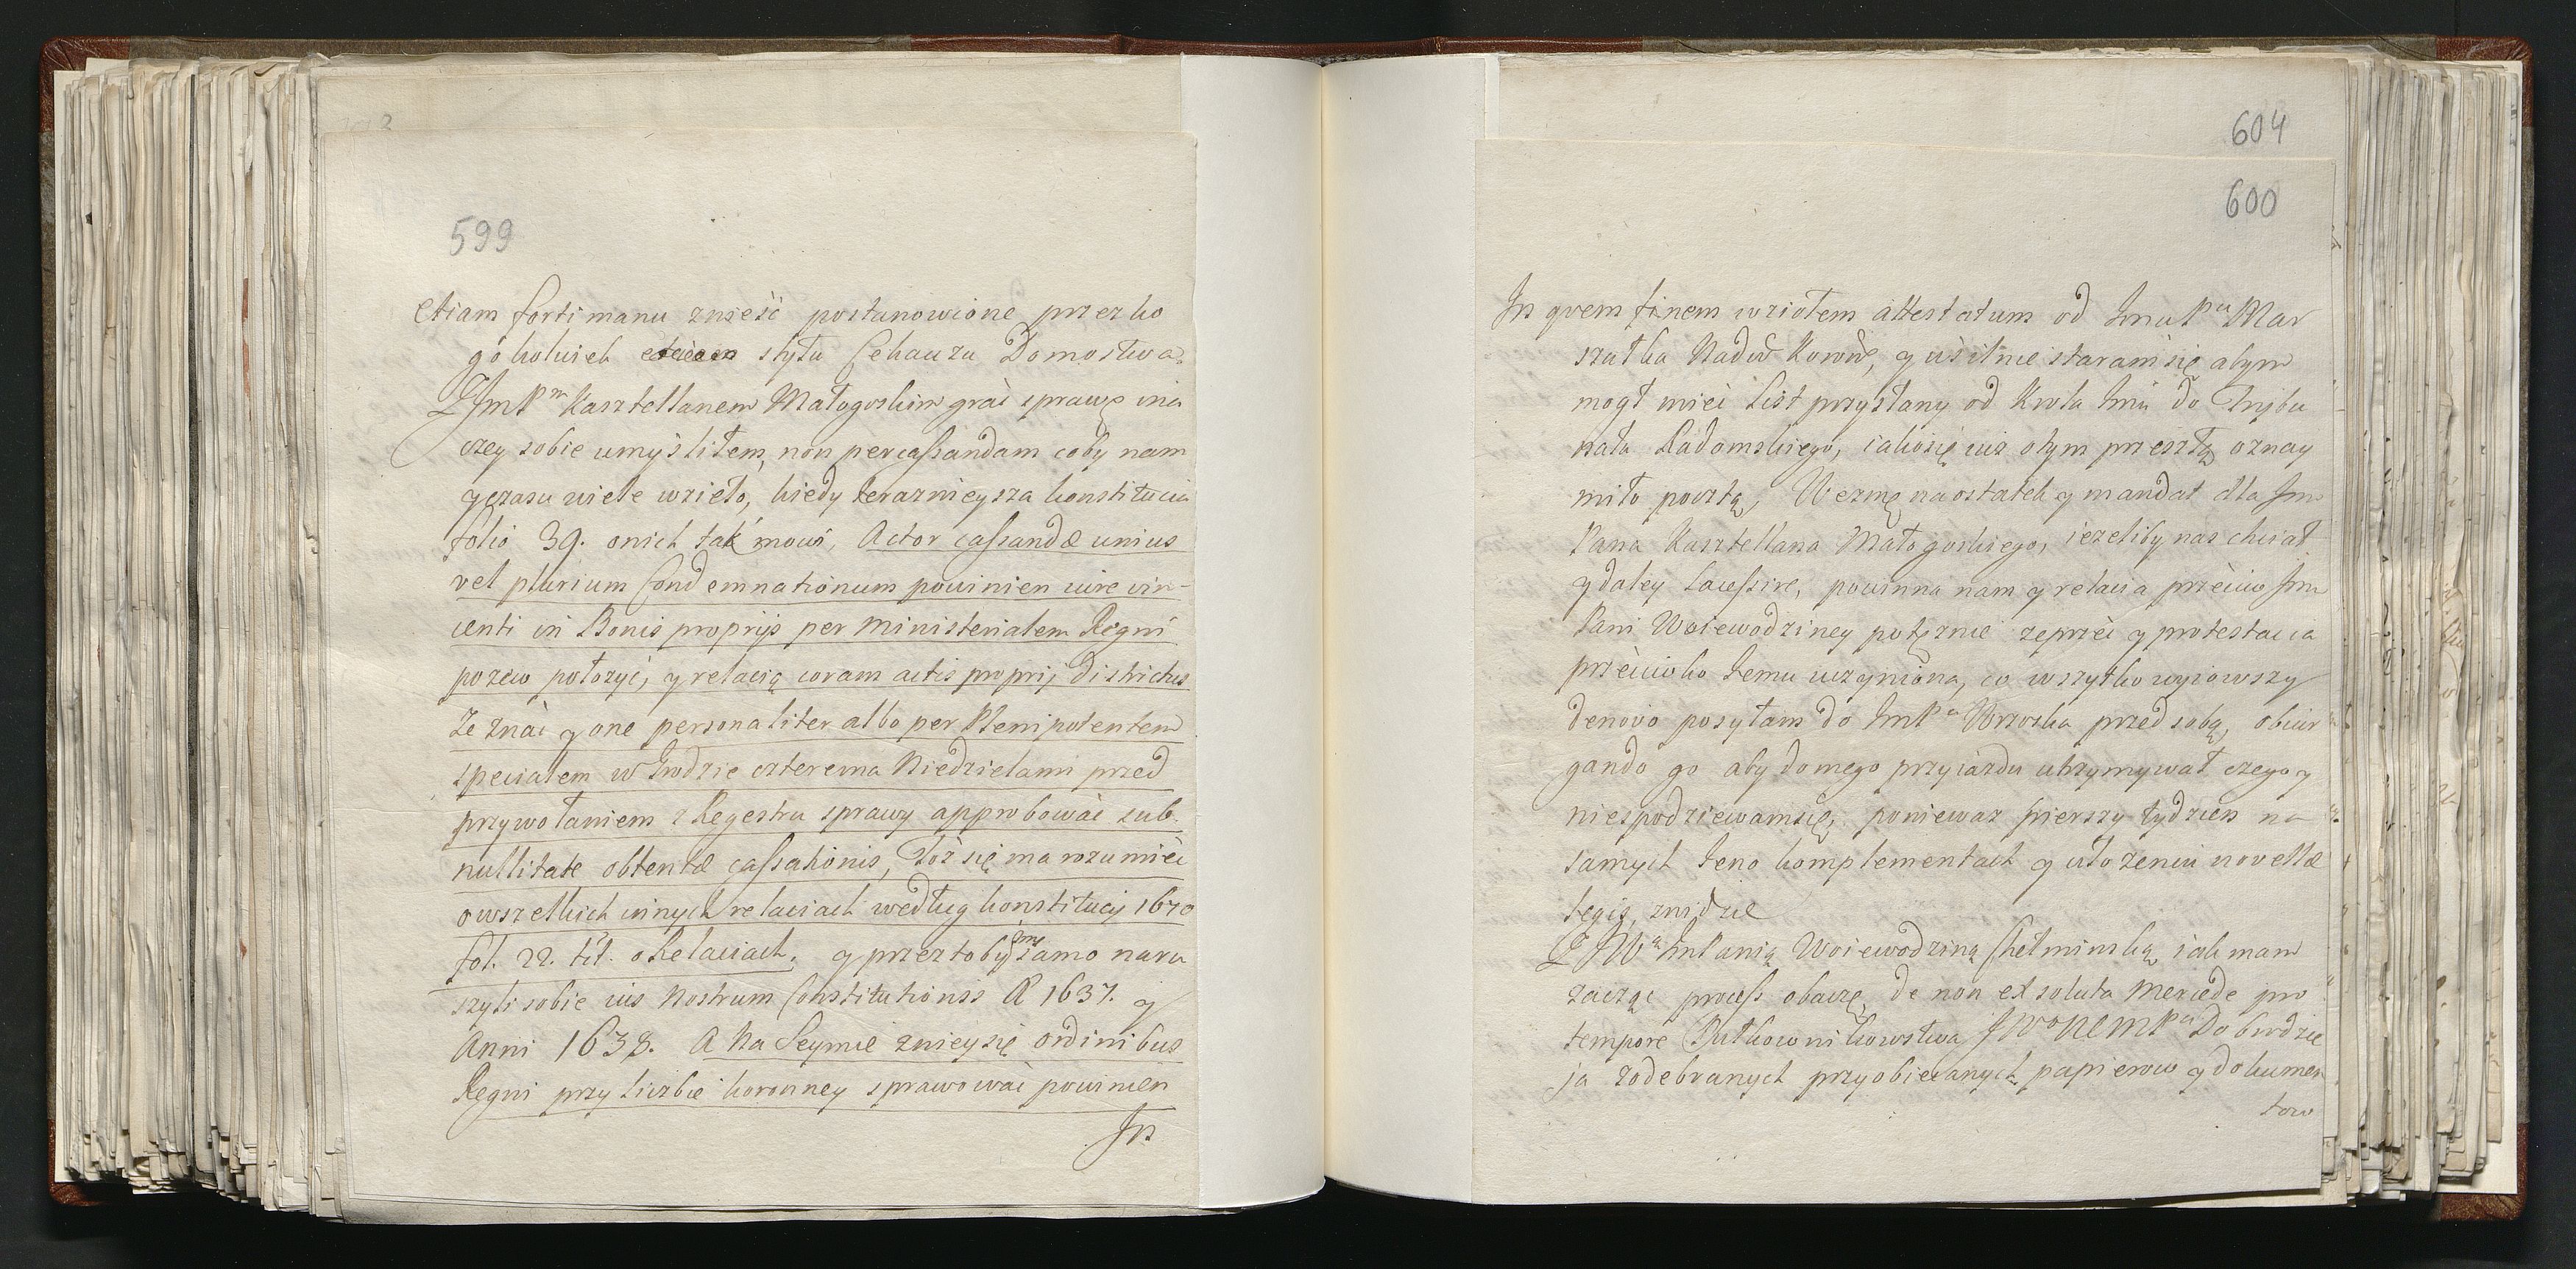 599
etiam forti manu znieść postanowione przez ko
gokolwiek etiam stylu Cekauzu Domostwa.
Z JmPm Kasztellanem Małogoskim grać sprawę ina
czey sobie umyśliłem, non per cassandam coby nam
y czasu wiele wzieło, kiedy teraznieysza konstitucia
folio 39. onich tak mowi, Actor cassandæ unius
vel plurium Condemnationum powinien iure vin-
centi in Bonis proprijs per Ministerialem Regni
pozew położyć, y relacią coram actis proprij Districtus
Zeznać y one personaliter albo per Plenipotentem
specialem w Grodzie czterema Niedzielami przed
przywołaniem z Regestru sprawy approbować sub
nullitate obtentæ cassationis, Toż się ma rozumieć
o wszelkich innych relaciach według konstitucij 1670
fol. 22. tit. o Relaciach, y przez toby samo naru
szyli sobie ius Nostrum Constitutionis A 1637. y
Anni 1638. A Na Seymie znieysię ordinibus
Regni przy liczbie koronney sprawować powinien
Jn
604
600
Jn qvem finem wziołem attestatum od JmuPa Mar
szałka Nadw Koron, y usilnie staramsię abym
mogł mieć List przysłany od Krola Jmci do Trybu
nału Radomskiego, iakosię iuż otym przeszłą oznay
miło pocztą, Wezmę naostatek y mandat dla Jm
Pana Kasztellana Małogoskiego, iezeliby nas chciał
y daley lacessire, powinna nam y relacia przeciw Jm
Pani Woiewodziney potężnie zeprzeć y protestacia
przeciwko temu uczyniona, co wszytko wyiowszy
denovo posyłam do JmPa Wrzoska przed sobą, obiur
gando go aby domego przyiazdu utrzymywał czego y
niespodziewamsię, poniewaz pierszy tydzień na
samych teno komplementach y ułożeniu novellæ
legis, znidzie
Z JWa JmPanią Woiewodziną Chełminską iak mam
zacząć process obaczę, de non exsoluta mercede pro
tempore Pułkownikowstwa
ja zodebranych przyobiecanych papierow y dokumen
tow